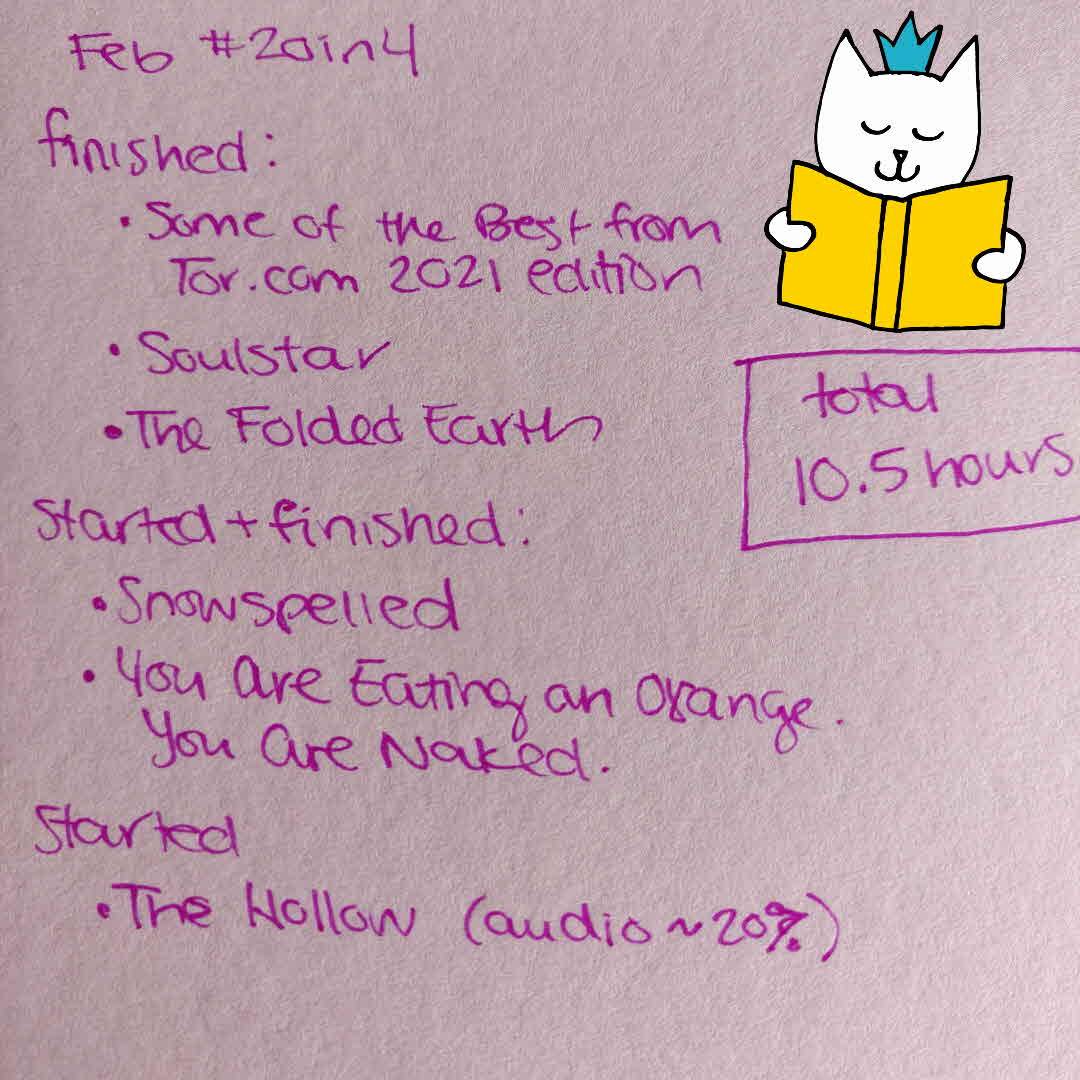 Feb #20in4
finished:
• Some of the Best from
Tor.com 2021 edition
• Soulstar
• The Folded Earth
total
10.5 hours
Started + finished:
• Snowspelled
• You Are Eating an Orange.
You Are Naked.
Started
• The Hollow (audio ~20%)